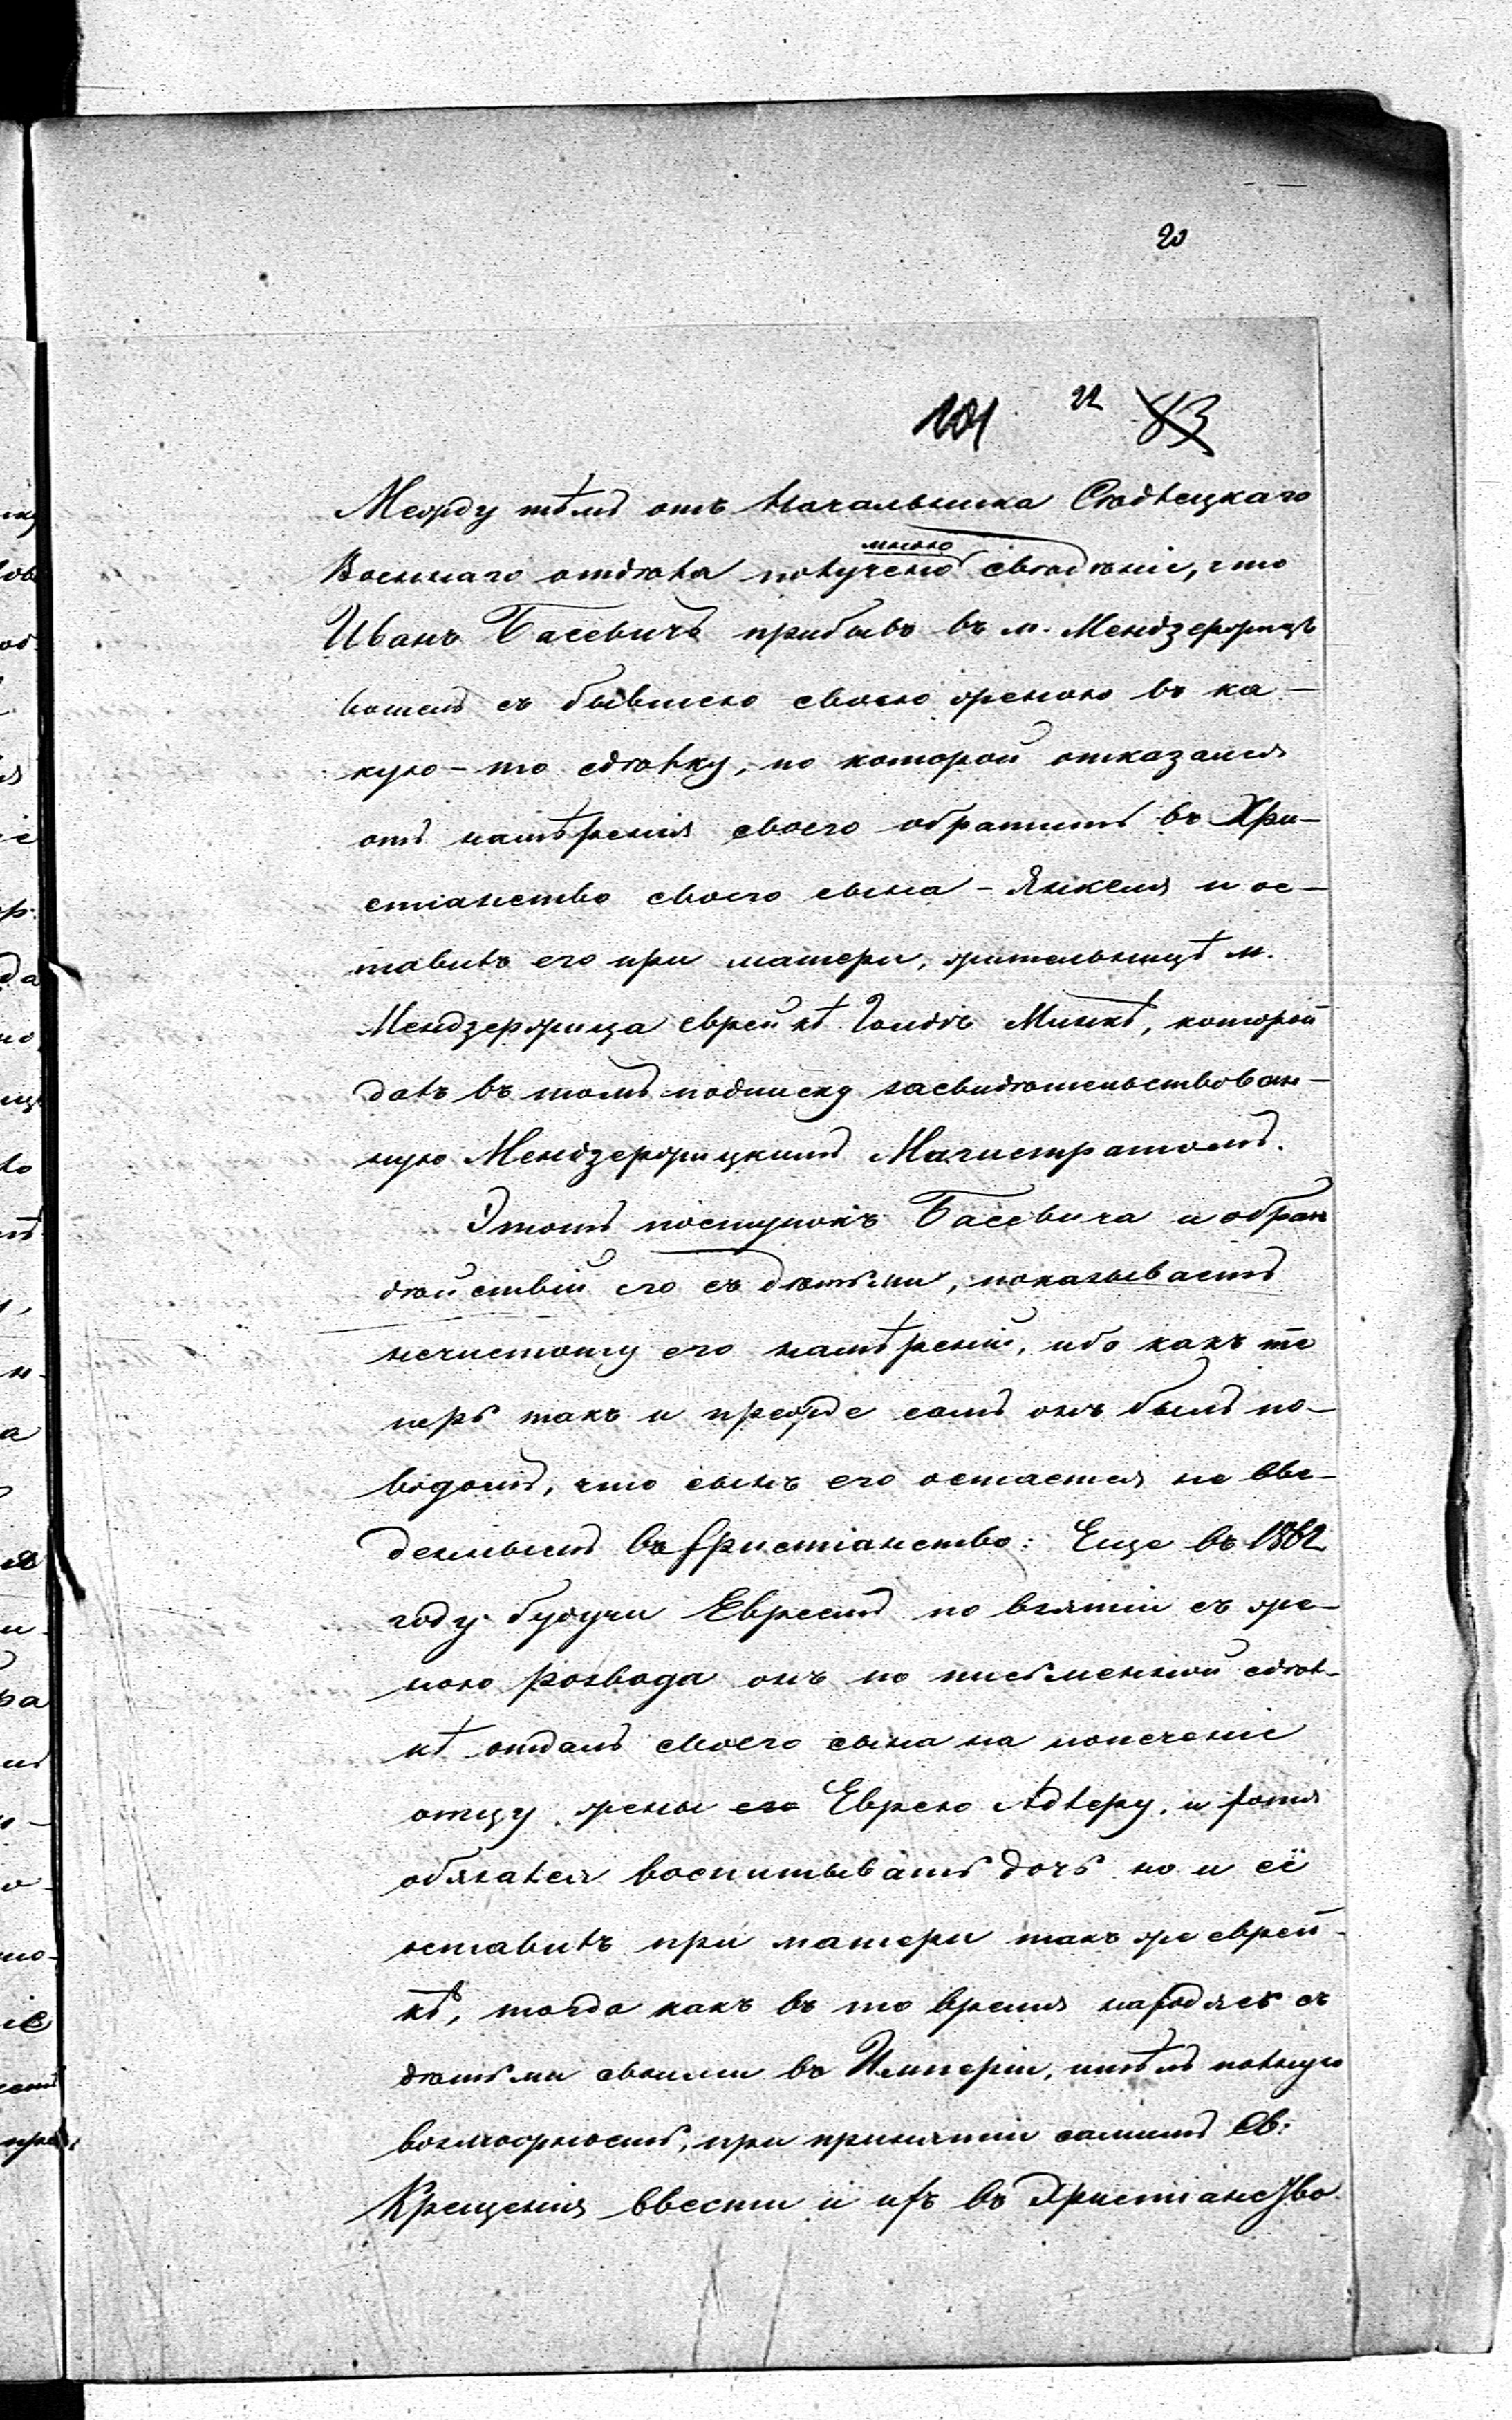 20
101 22 83
Между тѣмъ отъ Начальника Сѣдлецкаго
Военнаго отдѣла получено мною свѣдѣніе, что
Иванъ Басевичъ прибывъ въ м. Мендзержицъ
вошелъ съ бывшею своею женою въ ка-
кую-то сдѣлку, по которой отказался
отъ намѣренія своего обратить въ Хри-
стіанство своего сына - Янкеля и ос-
тавилъ его при матери, жительницѣ м.
Мендзержица еврейкѣ Гольдѣ Минкѣ, которой
далъ въ томъ подписку засвидѣтельствован-
ную Мендзержицкимъ Магистратомъ.
Этотъ поступокъ Басевича и образъ
дѣйствій его съ дѣтьми, показываетъ
нечистоту его намѣреній, ибо какъ те
перь такъ и прежде самъ онъ былъ по-
водомъ, что сынъ его остается не вве-
деннымъ въ христіанство: Еще въ 1862
году будучи Евреемъ по взятіи съ же-
ною развода онъ по письменной сдѣл-
кѣ отдалъ своего сына на попеченіе
отцу жены его Еврею Адлеру, и хотя
обязался воспитывать дочь но и её
оставилъ при матери такъ же еврей-
кѣ, тогда какъ въ то время находясь съ
дѣтьми своими въ Имперіи, имѣлъ полную
возможность, при принятіи самимъ Св:
Крещенія ввести и ихъ въ Христіанство.